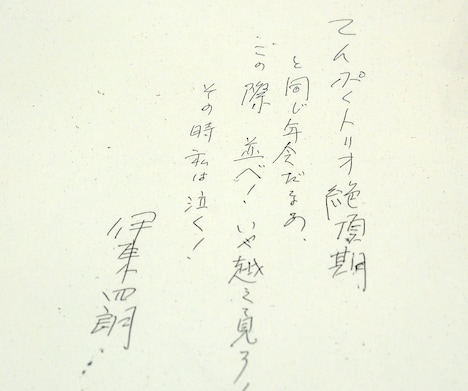 てんぷくトリオ絶頂期
と同じ年令だなあ、
この際 並べ!いや越えて見ろ!
その時私は泣く!
伊東四朗